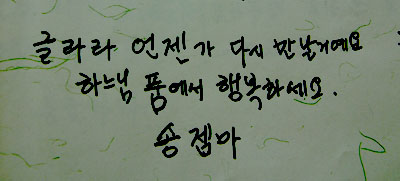 글라라 언젠가 다시 만날거예요
하느님 품에서 행복하세요.
송젬마